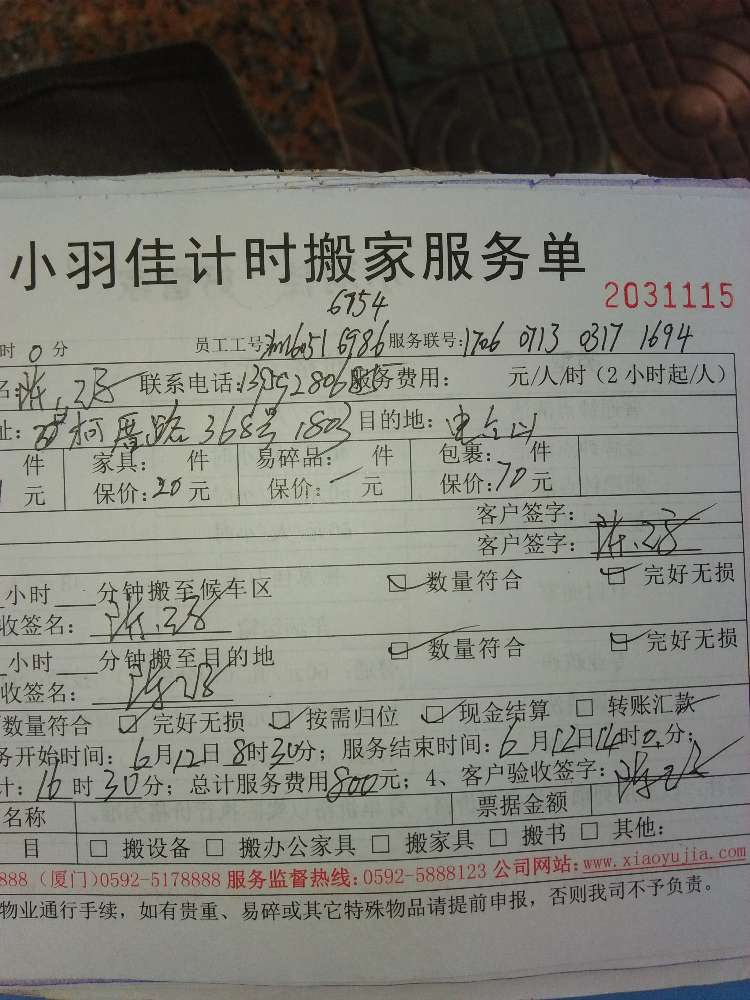 小羽佳计时搬家服务单
2031115
6754
时 0 分 员工工号 6986 服务联号: 1706 0713 0317 1694
联系电话: 服务费用: 元/人/时（2小时起/人）
址: 柯 路 368号 1803 目的地:
件 家具: 件 易碎品: 件 包裹: 件
元 保价: 20 元 保价: 元 保价: 70 元
客户签字:
客户签字:
小时 分钟搬至候车区 ☑ 数量符合 ☑ 完好无损
收签名:
小时 分钟搬至目的地 ☑ 数量符合 ☑ 完好无损
收签名:
数量符合 ☑ 完好无损 ☑ 按需归位 ☑ 现金结算 □ 转账汇款
务开始时间: 6月12日 8时30分; 服务结束时间: 6月12日14时0分;
计: 16时30分; 总计服务费用 800 元; 4、客户验收签字:
名称 票据金额
目 □ 搬设备 □ 搬办公家具 □ 搬家具 □ 搬书 □ 其他:
888 (厦门)0592-5178888 服务监督热线:0592-5888123 公司网站:www.xiaoyujia.com
物业通行手续，如有贵重、易碎或其它特殊物品请提前申报，否则我司不予负责。